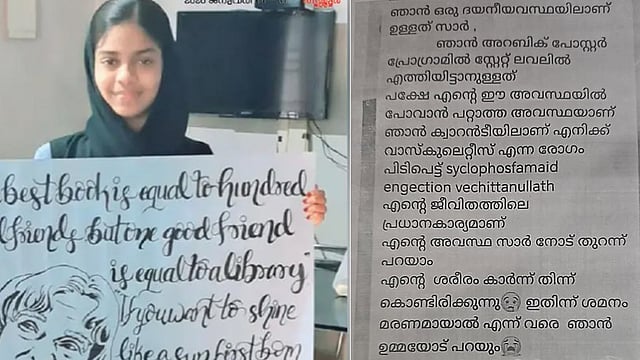 best book is equal to hundred
friends but one good friend
is equal to a library
If you want to shine
like a sun first born
ഞാൻ ഒരു ദയനീയവസ്ഥയിലാണ്
ഉള്ളത് സാർ ,
ഞാൻ അറബിക് പോസ്റ്റർ
പ്രോഗ്രാമിൽ സ്റ്റേറ്റ് ലവലിൽ
എത്തിയിട്ടാനുള്ളത്
പക്ഷേ എന്റെ ഈ അവസ്ഥയിൽ
പോവാൻ പറ്റാത്ത അവസ്ഥയാണ്
ഞാൻ ക്വാറൻടീയിലാണ് എനിക്ക്
വാസ്കുലെറ്റീസ് എന്ന രോഗം
പിടിപെട്ട് syclophosfamaid
engection vechittanullath
എന്റെ ജീവിതത്തിലെ
പ്രധാനകാര്യമാണ്
എന്റെ അവസ്ഥ സാർ നോട് തുറന്ന്
പറയാം
എന്റെ ശരീരം കാർന്ന് തിന്ന്
കൊണ്ടിരിക്കുന്നു😥 ഇതിന്ന് ശമനം
മരണമായാൽ എന്ന് വരെ ഞാൻ
ഉമ്മയോട് പറയും😭